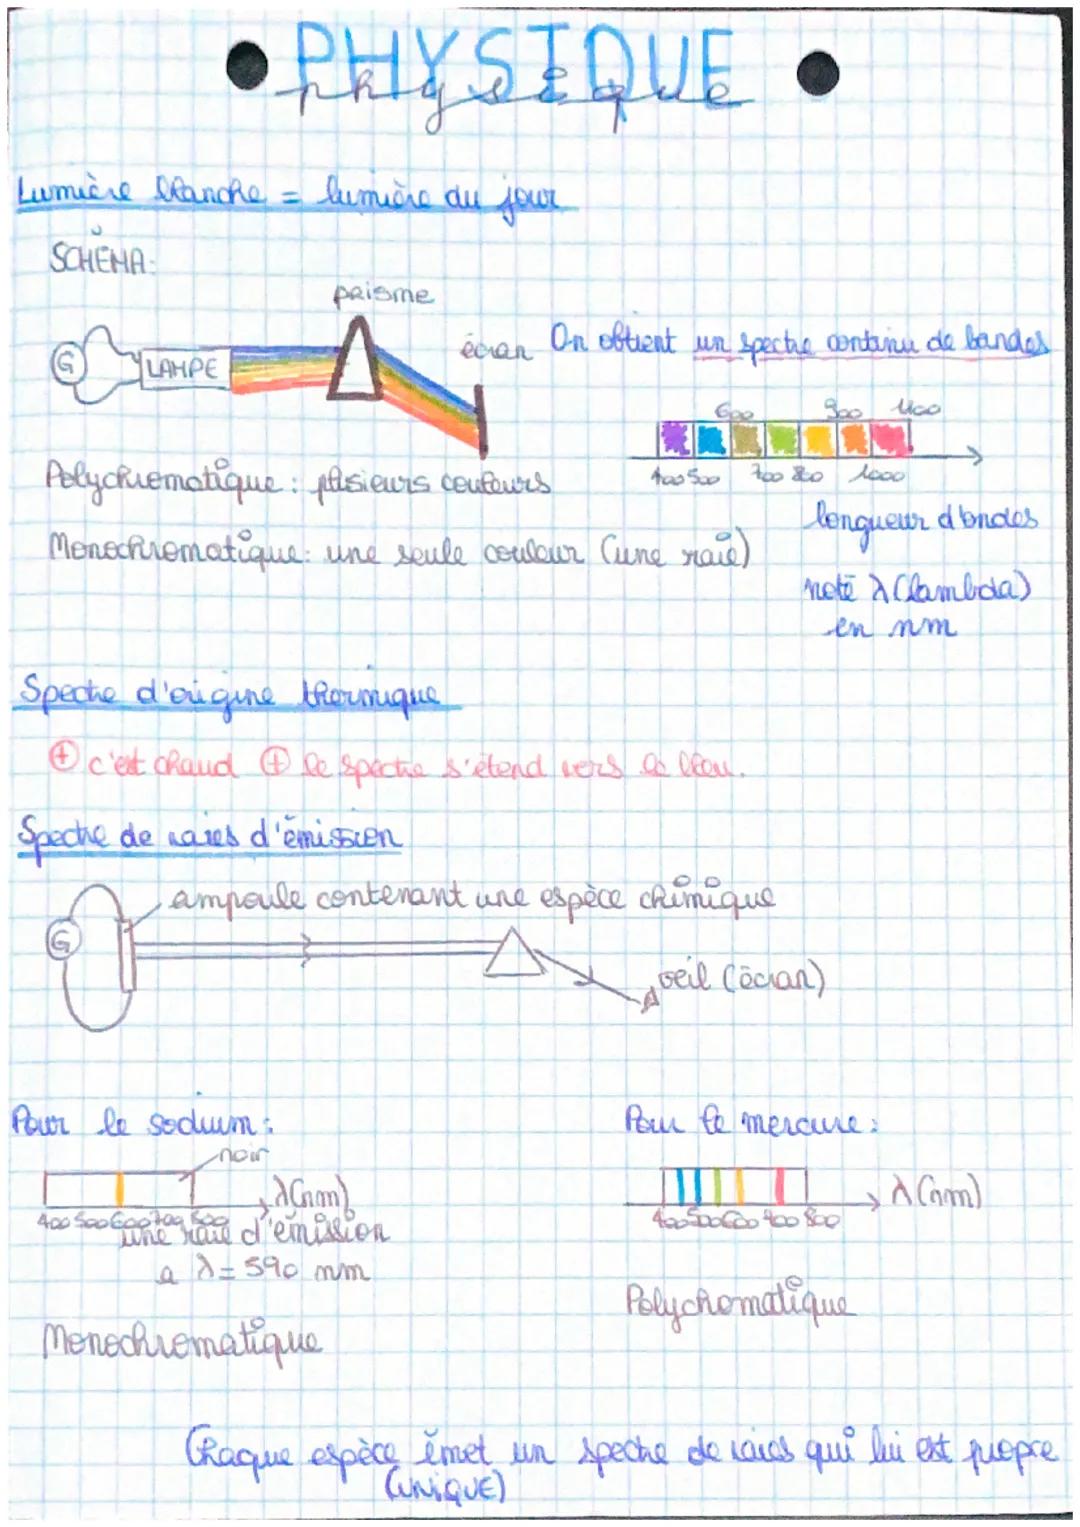 PHYSIQUE
physique
Lumière blanche = lumière du jour
SCHÉMA:
prisme
écran
On obtient un spectre continu de bandes
G
LAMPE
600 900 1100
400 500 700 800 1000
Polychromatique : plusieurs couleurs
longueur d'ondes
Monochromatique : une seule couleur (une raie)
noté λ (lambda)
en nm
Spectre d'origine thermique
+ c'est chaud + le spectre s'étend vers le bleu.
Spectre de raies d'émission
ampoule contenant une espèce chimique
G
oeil (écran)
Pour le sodium :
Pour le mercure :
noir
λ(nm)
λ (nm)
400 500 600 700 800
400 500 600 700 800
une raie d'émission
a λ = 590 nm
Polychomatique
Monochromatique
Chaque espèce émet un spectre de raies qui lui est propre
(UNIQUE)